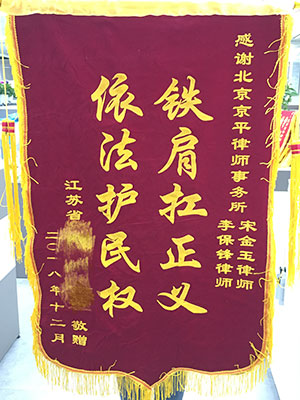 感谢北京京平律师事务所
宋金玉律师
李保锋律师
铁肩扛正义
依法护民权
江苏省
敬赠
二〇一八年十二月